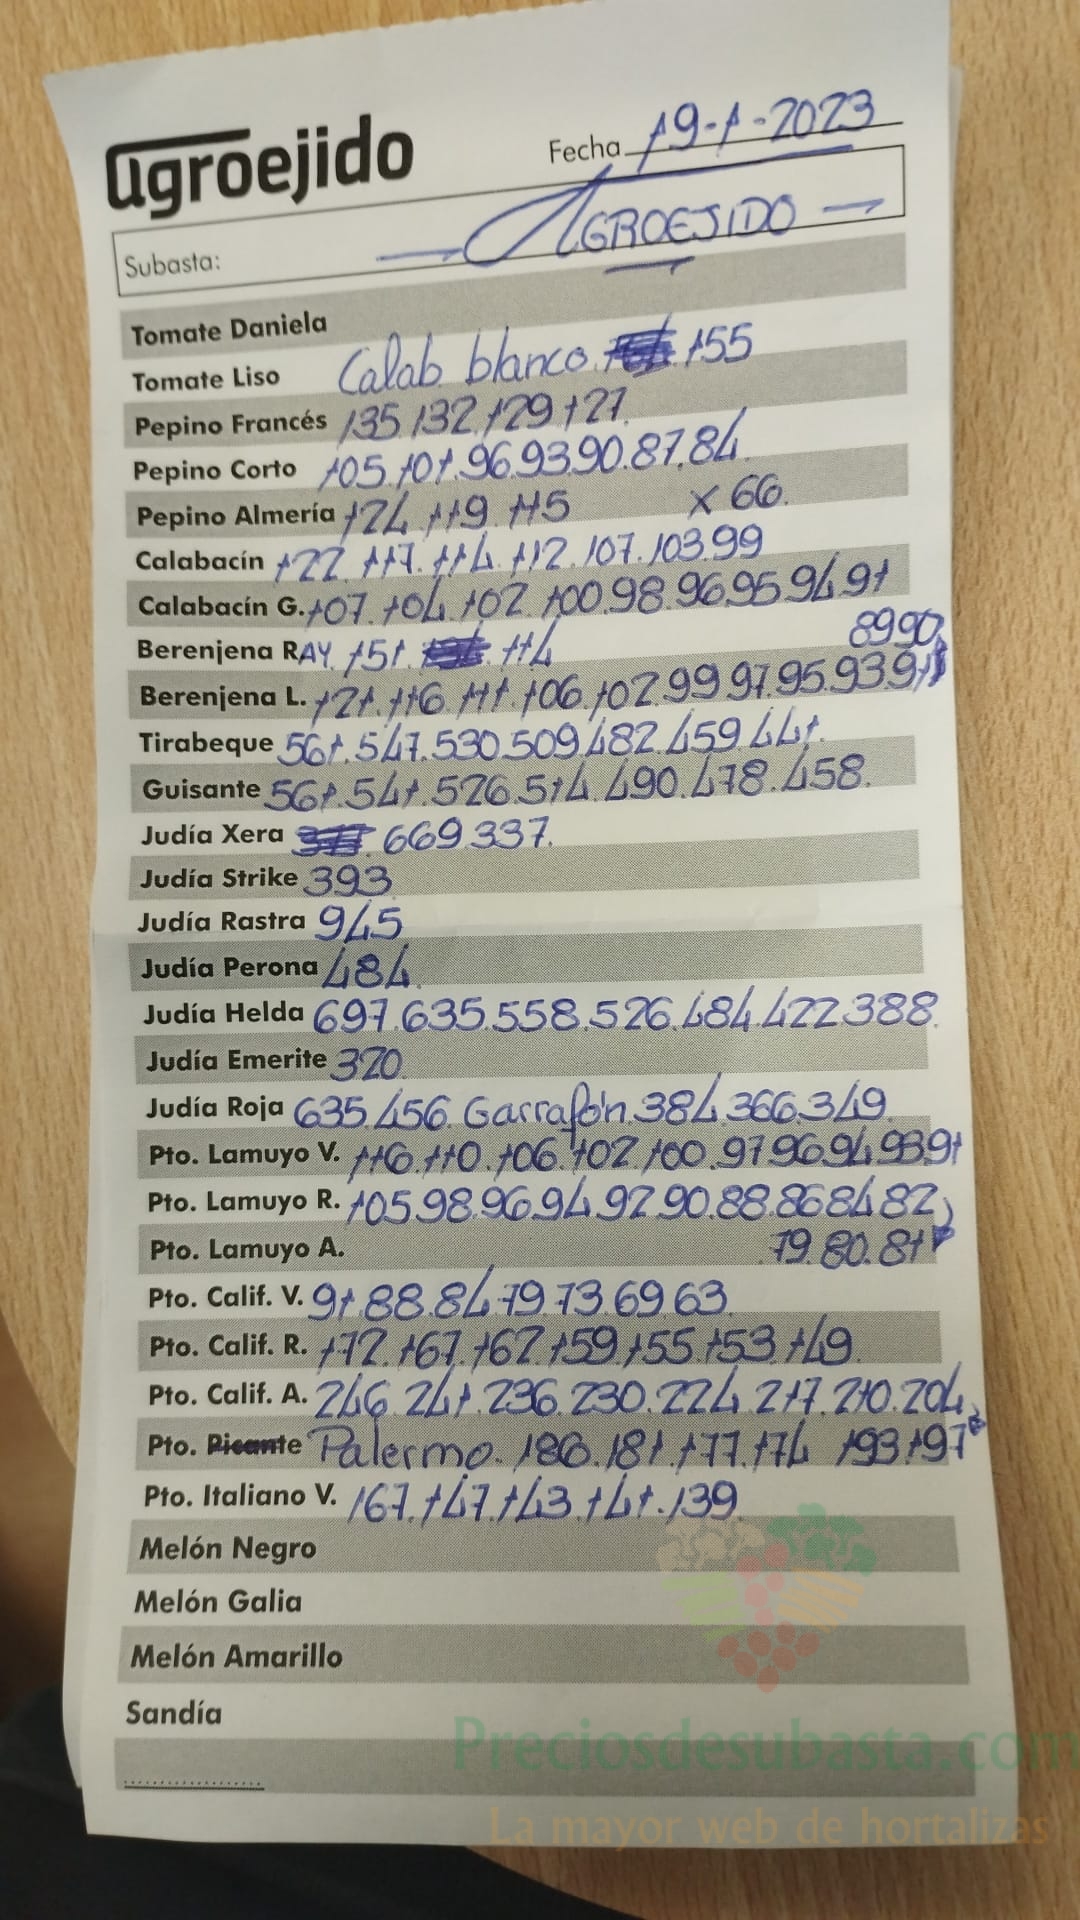 agroejido
Fecha 19-1-2023
Subasta: — AGROEJIDO —
Tomate Daniela
Tomate Liso Calab blanco. 155
Pepino Francés 135.132.129.127.
Pepino Corto 105.101.96.93.90.87.84.
Pepino Almería 124.119.115 X 66.
Calabacín 122.117.114.112.107.103.99
Calabacín G. 107.104.102.100.98.96.95.94.91
Berenjena RAY. 151. 114 89 90
Berenjena L. 121.116.111.106.102.99.97.95.93.91
Tirabeque 561.547.530.509.482.459.441.
Guisante 561.541.526.514.490.478.458.
Judía Xera 669.337.
Judía Strike 393
Judía Rastra 945
Judía Perona 484.
Judía Helda 697.635.558.526.484.422.388.
Judía Emerite 320.
Judía Roja 635.456. Garrafón.384.366.349
Pto. Lamuyo V. 116.110.106.102.100.97.96.94.93.91
Pto. Lamuyo R. 105.98.96.94.92.90.88.86.84.82
Pto. Lamuyo A. 79.80.81
Pto. Calif. V. 91.88.84.79.73.69.63.
Pto. Calif. R. 172.167.162.159.155.153.149.
Pto. Calif. A. 246.241.236.230.224.217.210.204
Pto. Picante Palermo. 186.181.177.174 193.197
Pto. Italiano V. 167.147.143.141.139.
Melón Negro
Melón Galia
Melón Amarillo
Sandía
Preciosdesubasta.com
La mayor web de hortalizas